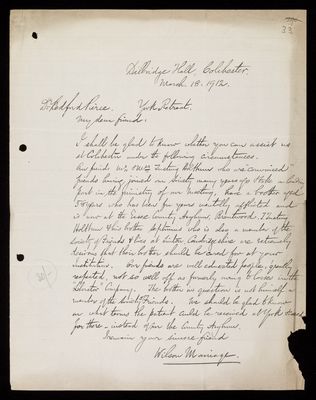 33
Hallbridge Hall, Colchester.
March 18. 1912.
Dr Bedford Pierce. York Retreat.
My dear friend,
I shall be glad to know whether you can assist us
at Colchester under the following circumstances.
Our friends Wm & M Holthum who are "convinced"
friends having joined our Society many years ago & take a
part in the ministry of our meeting, have a brother aged
58 years who has been for years mentally afflicted and
is now at the Essex County Asylum, Brentwood.
Holthum & his brother Septimus who is also a member of the
Society of Friends & lives at Linton Cambridgeshire are
desirous that their brother should be cared for at your
institution. Our friends are well educated people, greatly
respected, not so well off as formerly owing to losses in the
"Liberator" Company. The brother in question is not himself a
member of the Society of Friends. We should be glad to know
on what terms the patient could be received at York
for there - instead of in the County Asylum.
I remain your sincere friend
Wilson Marriage.